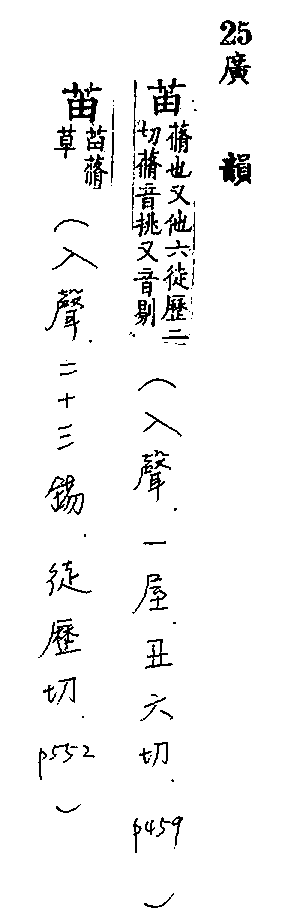 25廣　韻
苗 蓨也又他六徒歷二切蓨音挑又音剔（入聲．一屋．丑六切．p459）
苗 苗蓨草（入聲．二十三錫．徒歷切．p552）